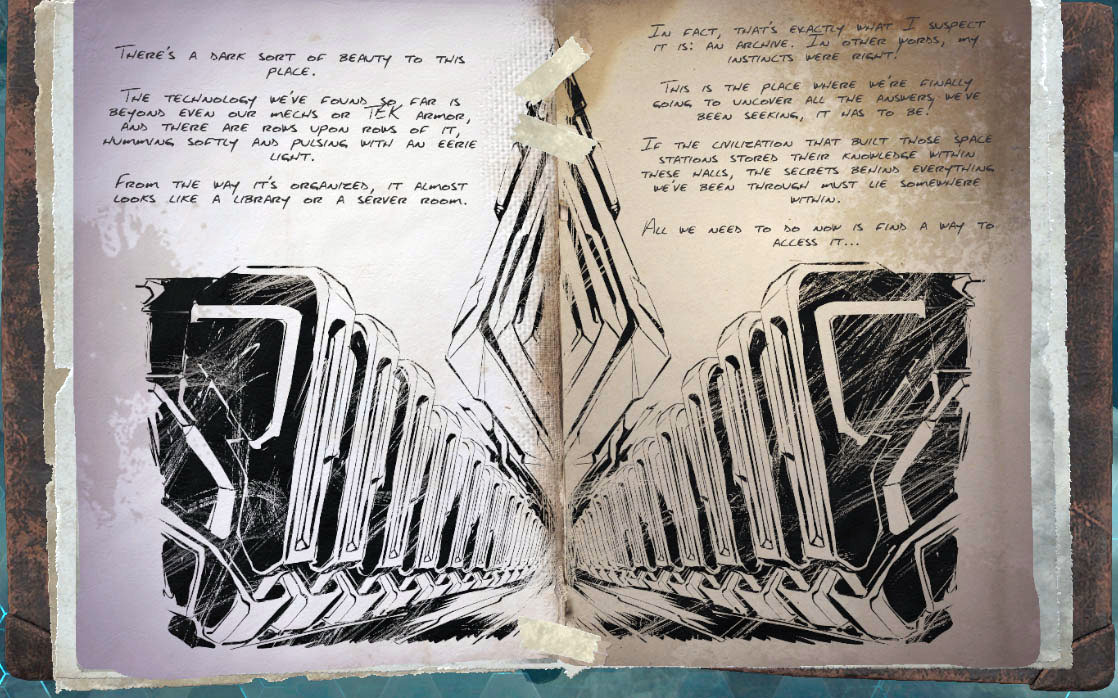 THERE'S A DARK SORT OF BEAUTY TO THIS
PLACE.
THE TECHNOLOGY WE'VE FOUND SO FAR IS
BEYOND EVEN OUR MECHS OR TEK ARMOR,
AND THERE ARE ROWS UPON ROWS OF IT,
HUMMING SOFTLY AND PULSING WITH AN EERIE
LIGHT.
FROM THE WAY IT'S ORGANIZED, IT ALMOST
LOOKS LIKE A LIBRARY OR A SERVER ROOM.
IN FACT, THAT'S EXACTLY WHAT I SUSPECT
IT IS: AN ARCHIVE. IN OTHER WORDS, MY
INSTINCTS WERE RIGHT!
THIS IS THE PLACE WHERE WE'RE FINALLY
GOING TO UNCOVER ALL THE ANSWERS WE'VE
BEEN SEEKING, IT HAS TO BE!
IF THE CIVILIZATION THAT BUILT THOSE SPACE
STATIONS STORED THEIR KNOWLEDGE WITHIN
THESE WALLS, THE SECRETS BEHIND EVERYTHING
WE'VE BEEN THROUGH MUST LIE SOMEWHERE
WITHIN.
ALL WE NEED TO DO NOW IS FIND A WAY TO
ACCESS IT...